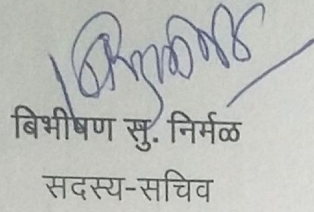 बिभीषण सु. निर्मळ
सदस्य-सचिव